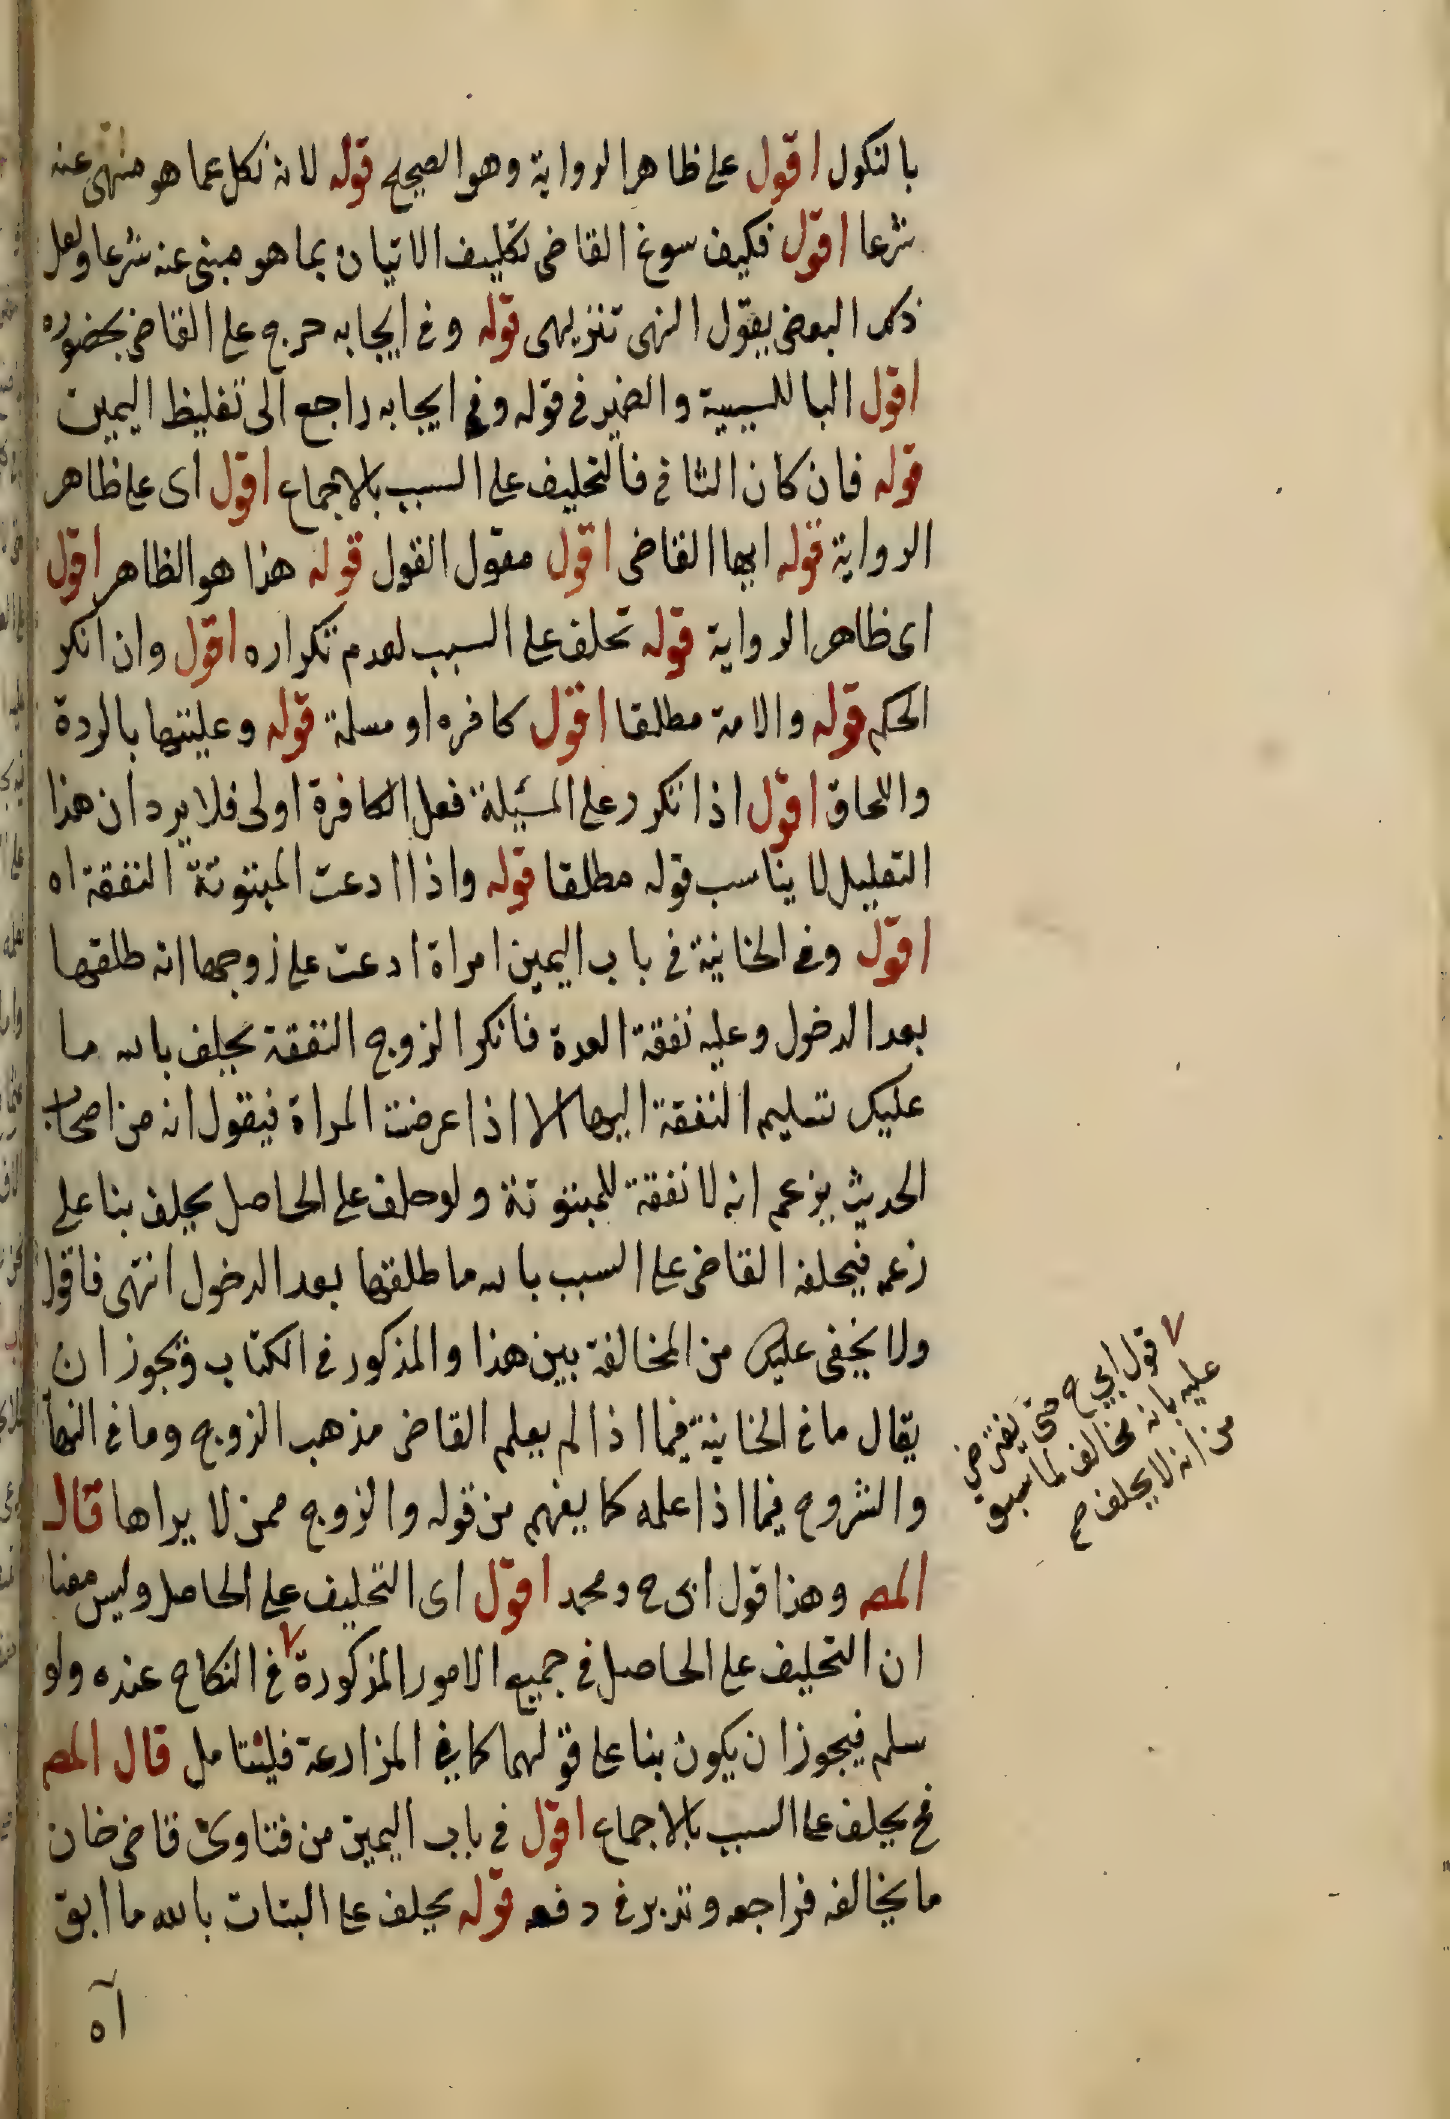 بالنكول اقول على ظاهر الرواية وهو الصحيح قوله لانه نكل عما هو منهى عنه
شرعا اقول فكيف سوغ القاضى تكليف الاتيان بما هو منهى عنه شرعا ولعل
ذلك البعض يقول النهى تنزيهى قوله وفى ايجابه حرج على القاضى بحضوره
اقول البا للسببية والضمير فى قوله وفى ايجابه راجع الى تغليظ اليمين
قوله فان كان الثانى فالتحليف على السبب بالاجماع اقول اى على ظاهر
الرواية قوله ايها القاضى اقول مقول القول قوله هذا هو الظاهر اقول
اى ظاهر الرواية قوله تحلف على السبب لعدم تكراره اقول وان انكر
الحكم قوله والامة مطلقا اقول كافره او مسلمة قوله وعليتها بالردة
واللحاق اقول اذا تكرر على المسئلة فعل الكافرة اولى فلا يرد ان هذا
التعليل لا يناسب قوله مطلقا قوله واذا ادعت المبتوتة النفقة اه
اقول وفى الخانية فى باب اليمين امراة ادعت على زوجها انه طلقها
بعد الدخول وعليه نفقة العدة فانكر الزوج النفقة يحلف بالله ما
عليك تسليم النفقة اليها الا اذا عرضت المراة فيقول انه من اصحاب
الحديث يزعم انه لا نفقة للمبتوتة ولو حلف على الحاصل يحلف بنا على
زعمه فيحلفه القاضى على السبب بالله ما طلقتها بعد الدخول انتهى فاقول
ولا يخفى عليك من المخالفة بين هذا والمذكور فى الكتاب ويجوز ان
يقال ما فى الخانية فيما اذا لم يعلم القاضى مذهب الزوج وما فى النها
والشروح فيما اذا علمه كما يفهم من قوله والزوج ممن لا يراها قال
المص وهذا قول ابى ح ومحمد اقول اى التحليف على الحاصل وليس معنا
ان التحليف على الحاصل فى جميع الامور المذكورة فى النكاح عنده ولو
سلم فيجوز ان يكون بنا على قولهما كما فى المزارعة فليتامل قال المص
فح يحلف على السبب بالاجماع اقول فى باب اليمين من فتاوى قاضى خان
ما يخالفه فراجعه وتدبر فى دفعه قوله يحلف على البتات بالله ما ابق
آه
قول ابي ح حتى يعترض
عليه بانه مخالف لما سبق
من انه لا يحلف صح